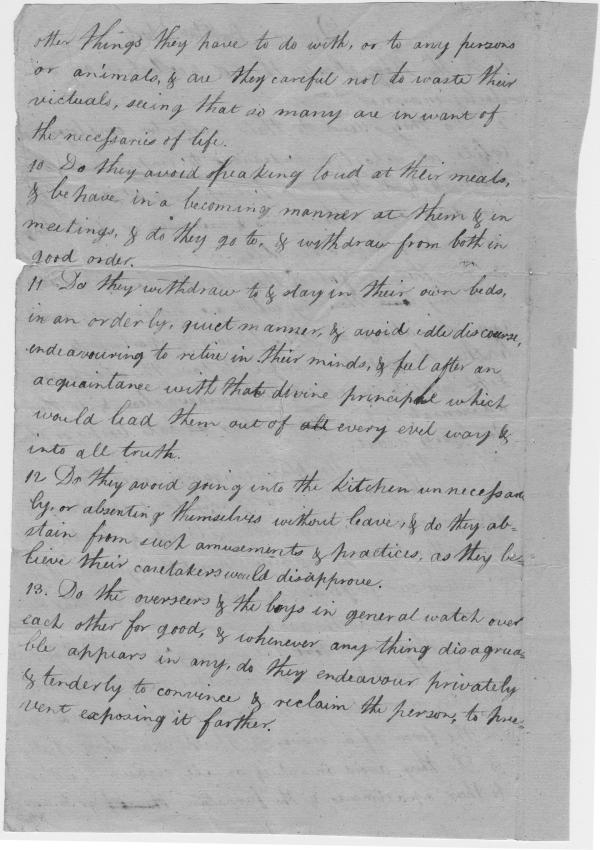 other things they have to do with, or to any persons
or animals, & are they careful not to waste their
victuals, seeing that so many are in want of
the necessaries of life.
10 Do they avoid speaking loud at their meals,
& behave in a becoming manner at them & in
meetings, & do they go to, & withdraw from both in
good order.
11 Do they withdraw to & stay in their own beds,
in an orderly, quiet manner, & avoid idle discourse,
endeavouring to retire in their minds, & feel after an
acquaintance with that divine principle which
would lead them out of all every evil way &
into all truth.
12 Do they avoid going into the kitchen unnecessari
ly, or absenting themselves without leave, & do they ab-
stain from such amusements & practices, as they be-
lieve their caretakers would disapprove.
13. Do the overseers & the boys in general watch over
each other for good, & whenever any thing disagreea-
ble appears in any, do they endeavour privately
& tenderly to convince & reclaim the person, to pre-
vent exposing it farther.